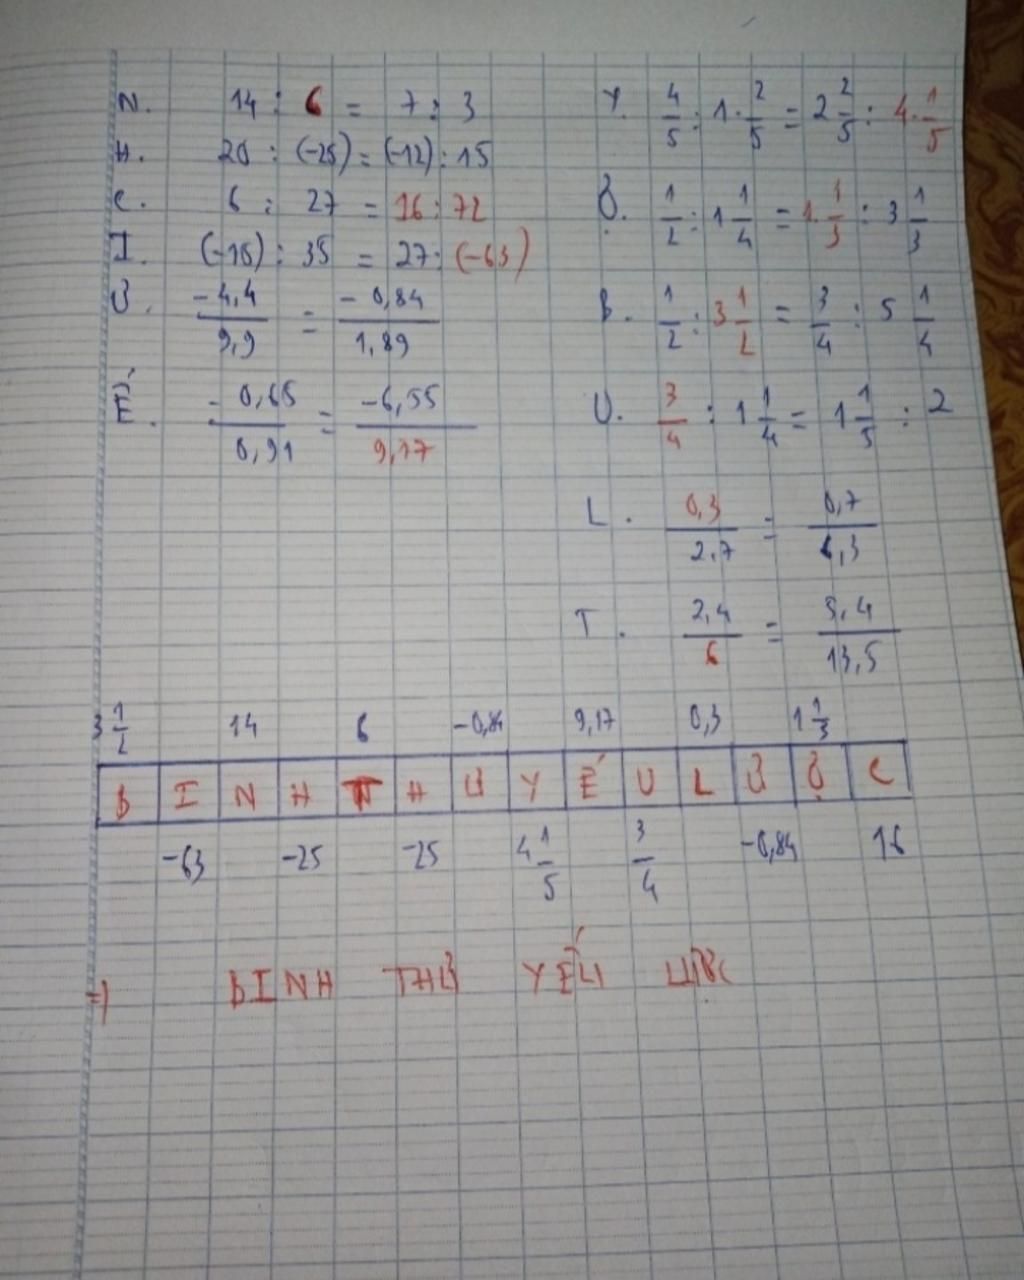 N. 14 : 6 = 7 : 3
H. 20 : (-25) = (-12) : 15
C. 6 : 27 = 16 : 72
I. (-15) : 35 = 27 : (-63)
Ư. -4,4/9,9 = -0,84/1,89
Ế. -0,65/0,91 = -6,55/9,17
Y. 4/5 : 1 2/5 = 2 2/5 : 4 1/5
Ợ. 1/2 : 1 1/4 = 1 1/3 : 3 1/3
B. 1/2 : 3 1/2 = 3/4 : 5 1/4
U. 3/4 : 1 1/4 = 1 1/5 : 2
L. 0,3/2,7 = 0,7/6,3
T. 2,4/6 = 5,4/13,5
3 1/2 14 6 -0,84 9,17 0,3 1 1/3
B I N H T H Ư Y Ế U L Ư Ợ C
-63 -25 -25 4 1/5 3/4 -0,84 16
=> BINH THƯ YẾU LƯỢC